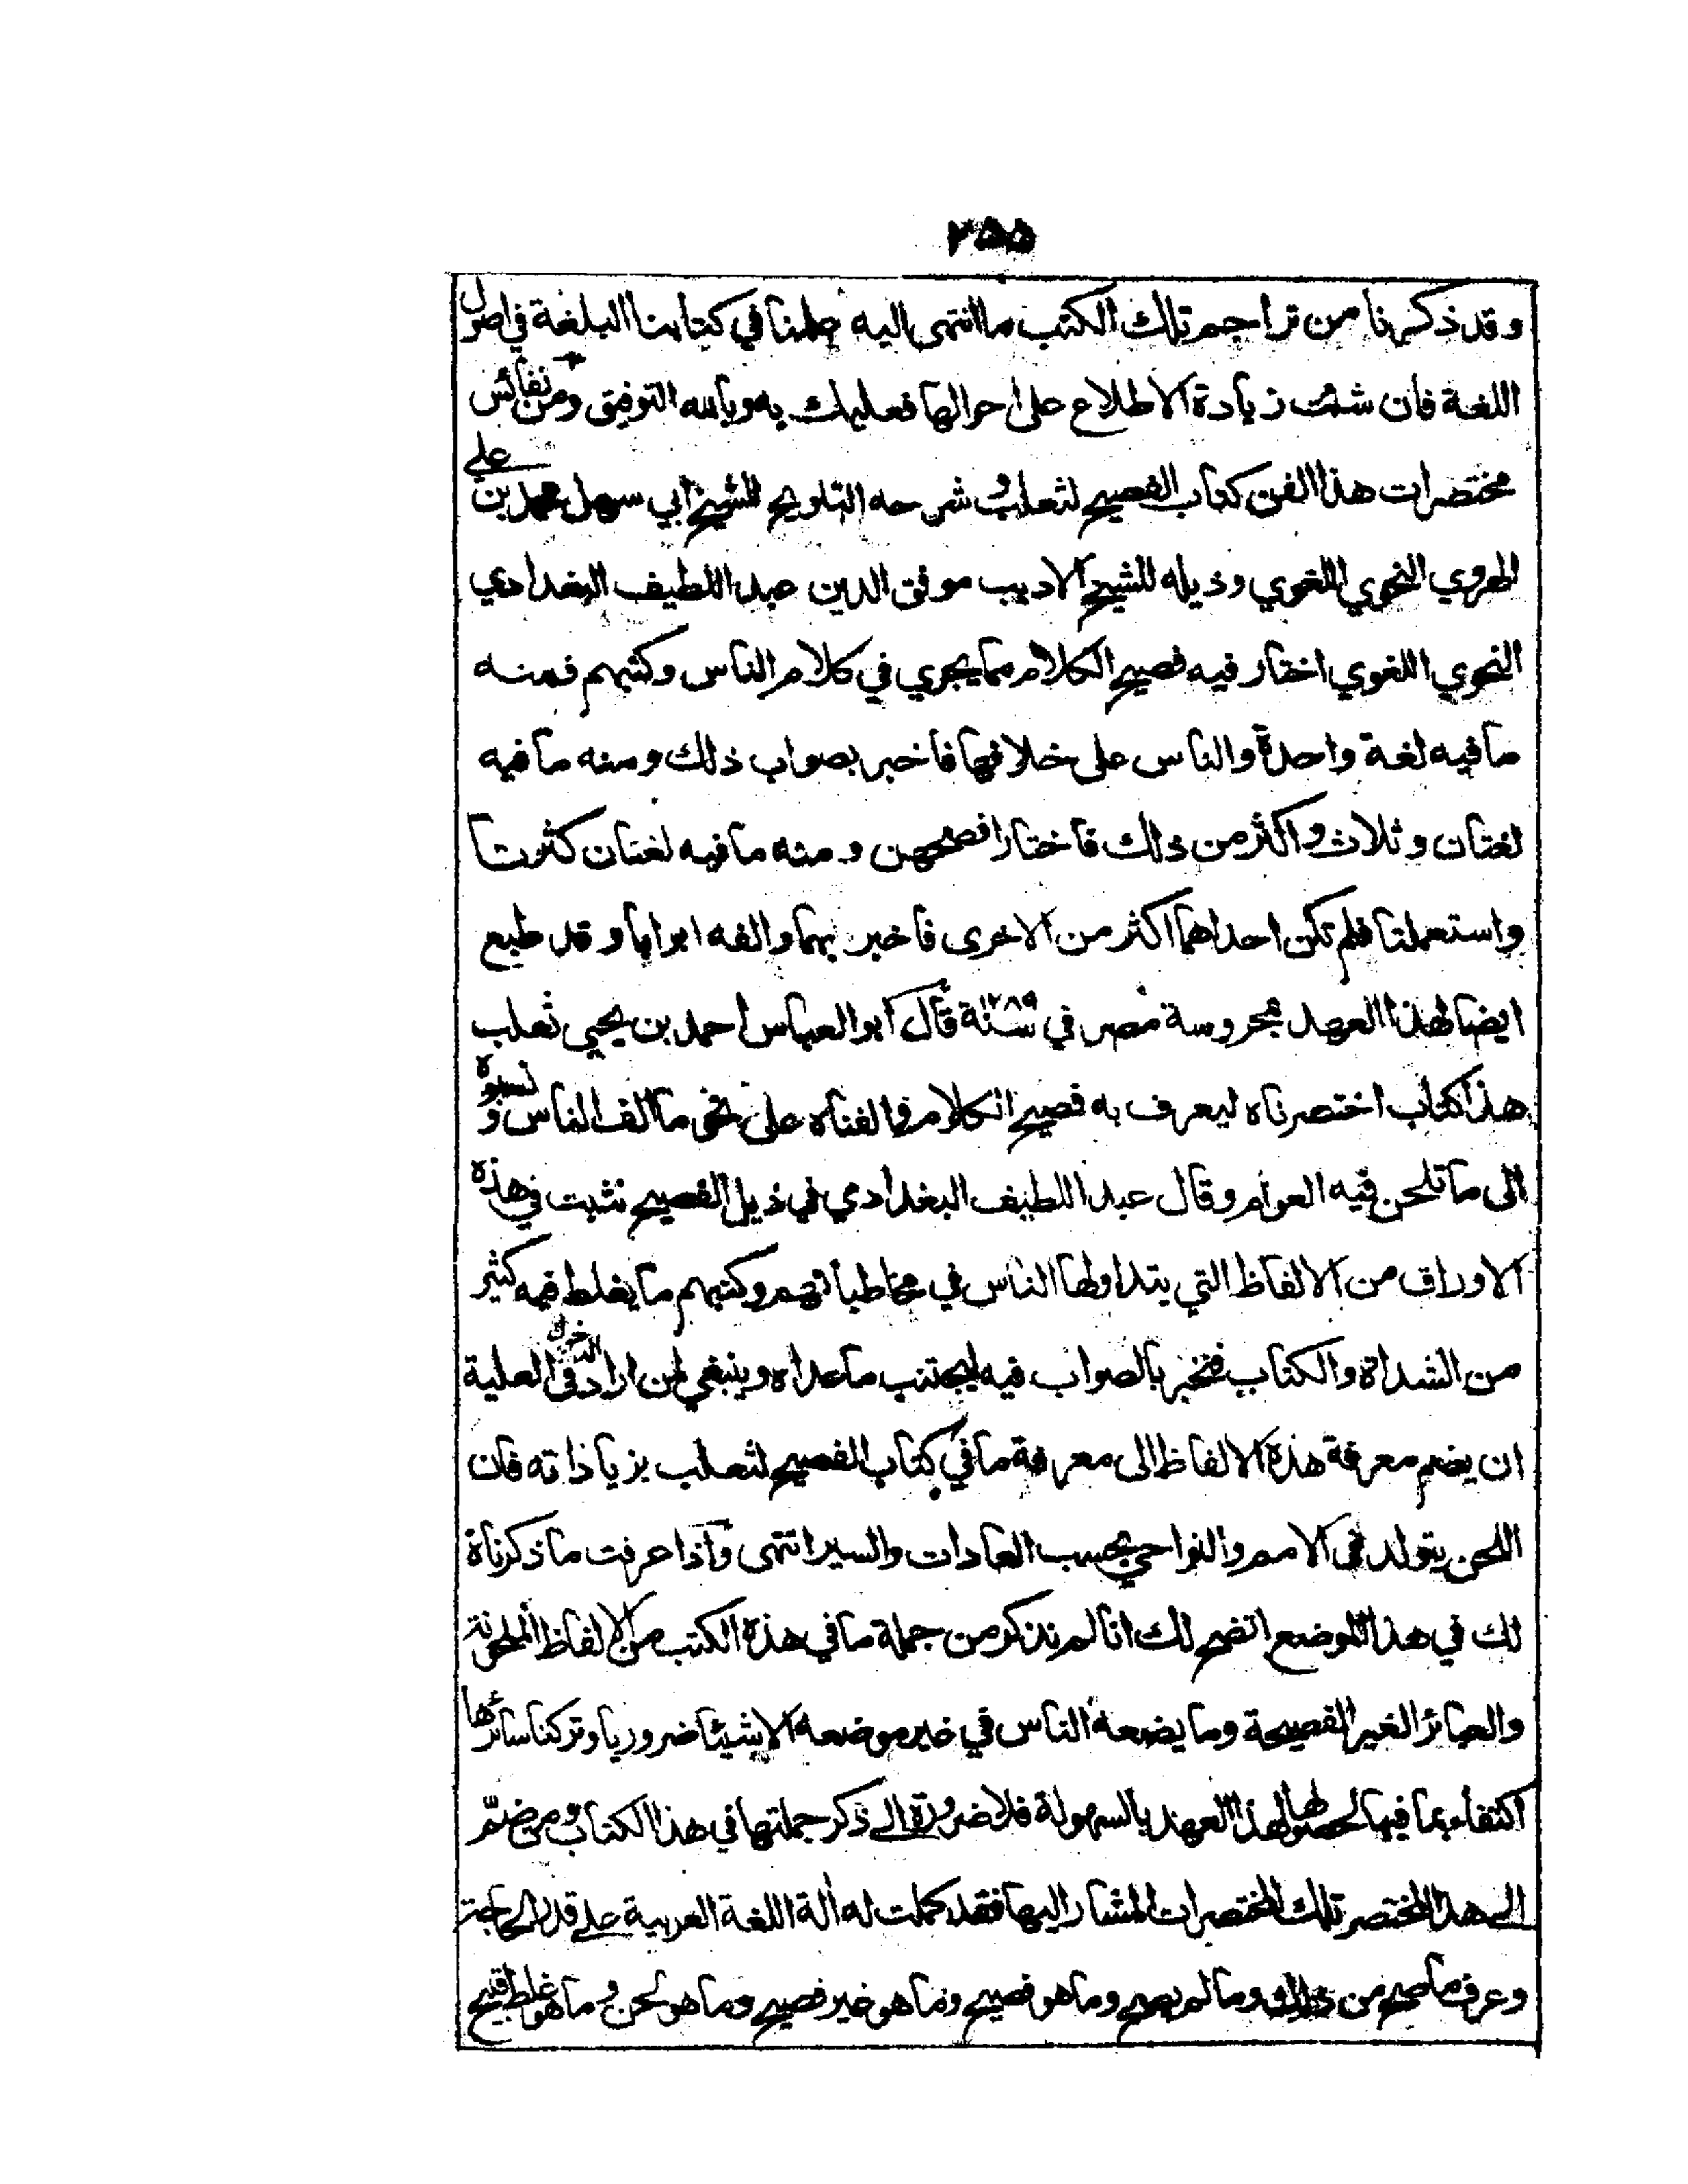 ٢٥٥
وقد ذكرنا من تراجم تلك الكتب ما انتهى اليه علمنا في كتابنا البلغة في اصول
اللغة فان شئت زيادة الاطلاع على احوالها فعليك به وبالله التوفيق ومن نفائس
مختصرات هذا الفن كتاب الفصيح لثعلب وشرحه التلويح للشيخ ابي سهل محمد بن علي
الهروي النحوي اللغوي وذيله للشيخ الاديب موفق الدين عبد اللطيف البغدادي
النحوي اللغوي اختار فيه فصيح الكلام مما يجري في كلام الناس وكتبهم فمنه
ما فيه لغة واحدة والناس على خلافها فاخبر بصواب ذلك ومنه ما فيه
لغتان وثلاث واكثر من ذلك فاختار افصحهن ومنه ما فيه لغتان كثرتا
واستعملتا فلم تكن احداهما اكثر من الاخرى فاخبر بهما والفه ابوابا وقد طبع
ايضا لهذا العهد بمحروسة مصر في سنة ١٢٨٩ قال ابو العباس احمد بن يحيى ثعلب
هذا كتاب اختصرناه ليعرف به فصيح الكلام والفناه على نحو ما الف الناس ونسبوه
الى ما تلحن فيه العوام وقال عبد اللطيف البغدادي في ذيل الفصيح نثبت في هذه
الاوراق من الالفاظ التي يتداولها الناس في مخاطباتهم وكتبهم ما يغلط فيه كثير
من الشداة والكتاب فنخبر بالصواب فيه ليجتنب ما عداه وينبغي لمن اراد الدخول في العلية
ان يضم معرفة هذه الالفاظ الى معرفة ما في كتاب الفصيح لثعلب بزياداته فان
اللحن يتولد في الامم والنواحي بحسب العادات والسير انتهى واذا عرفت ما ذكرناه
لك في هذا الموضع اتضح لك انا لم نذكر من جملة ما في هذه الكتب من الالفاظ الملحونة
والعبائر الغير الفصيحة وما يضعه الناس في غير موضعه الا شيئا ضروريا وتركنا سائرها
اكتفاء بما فيها لحصولها لهذا العهد بالسهولة فلا ضرورة الى ذكر جملتها في هذا الكتاب ومن ضم
الى هذا المختصر تلك المختصرات المشار اليها فقد كملت له ألة اللغة العربية على قدر الحاجة
وعرف ما صح من ذلك وما لم يصح وما هو فصيح وما هو غير فصيح وما هو لحن وما هو غلط قبيح